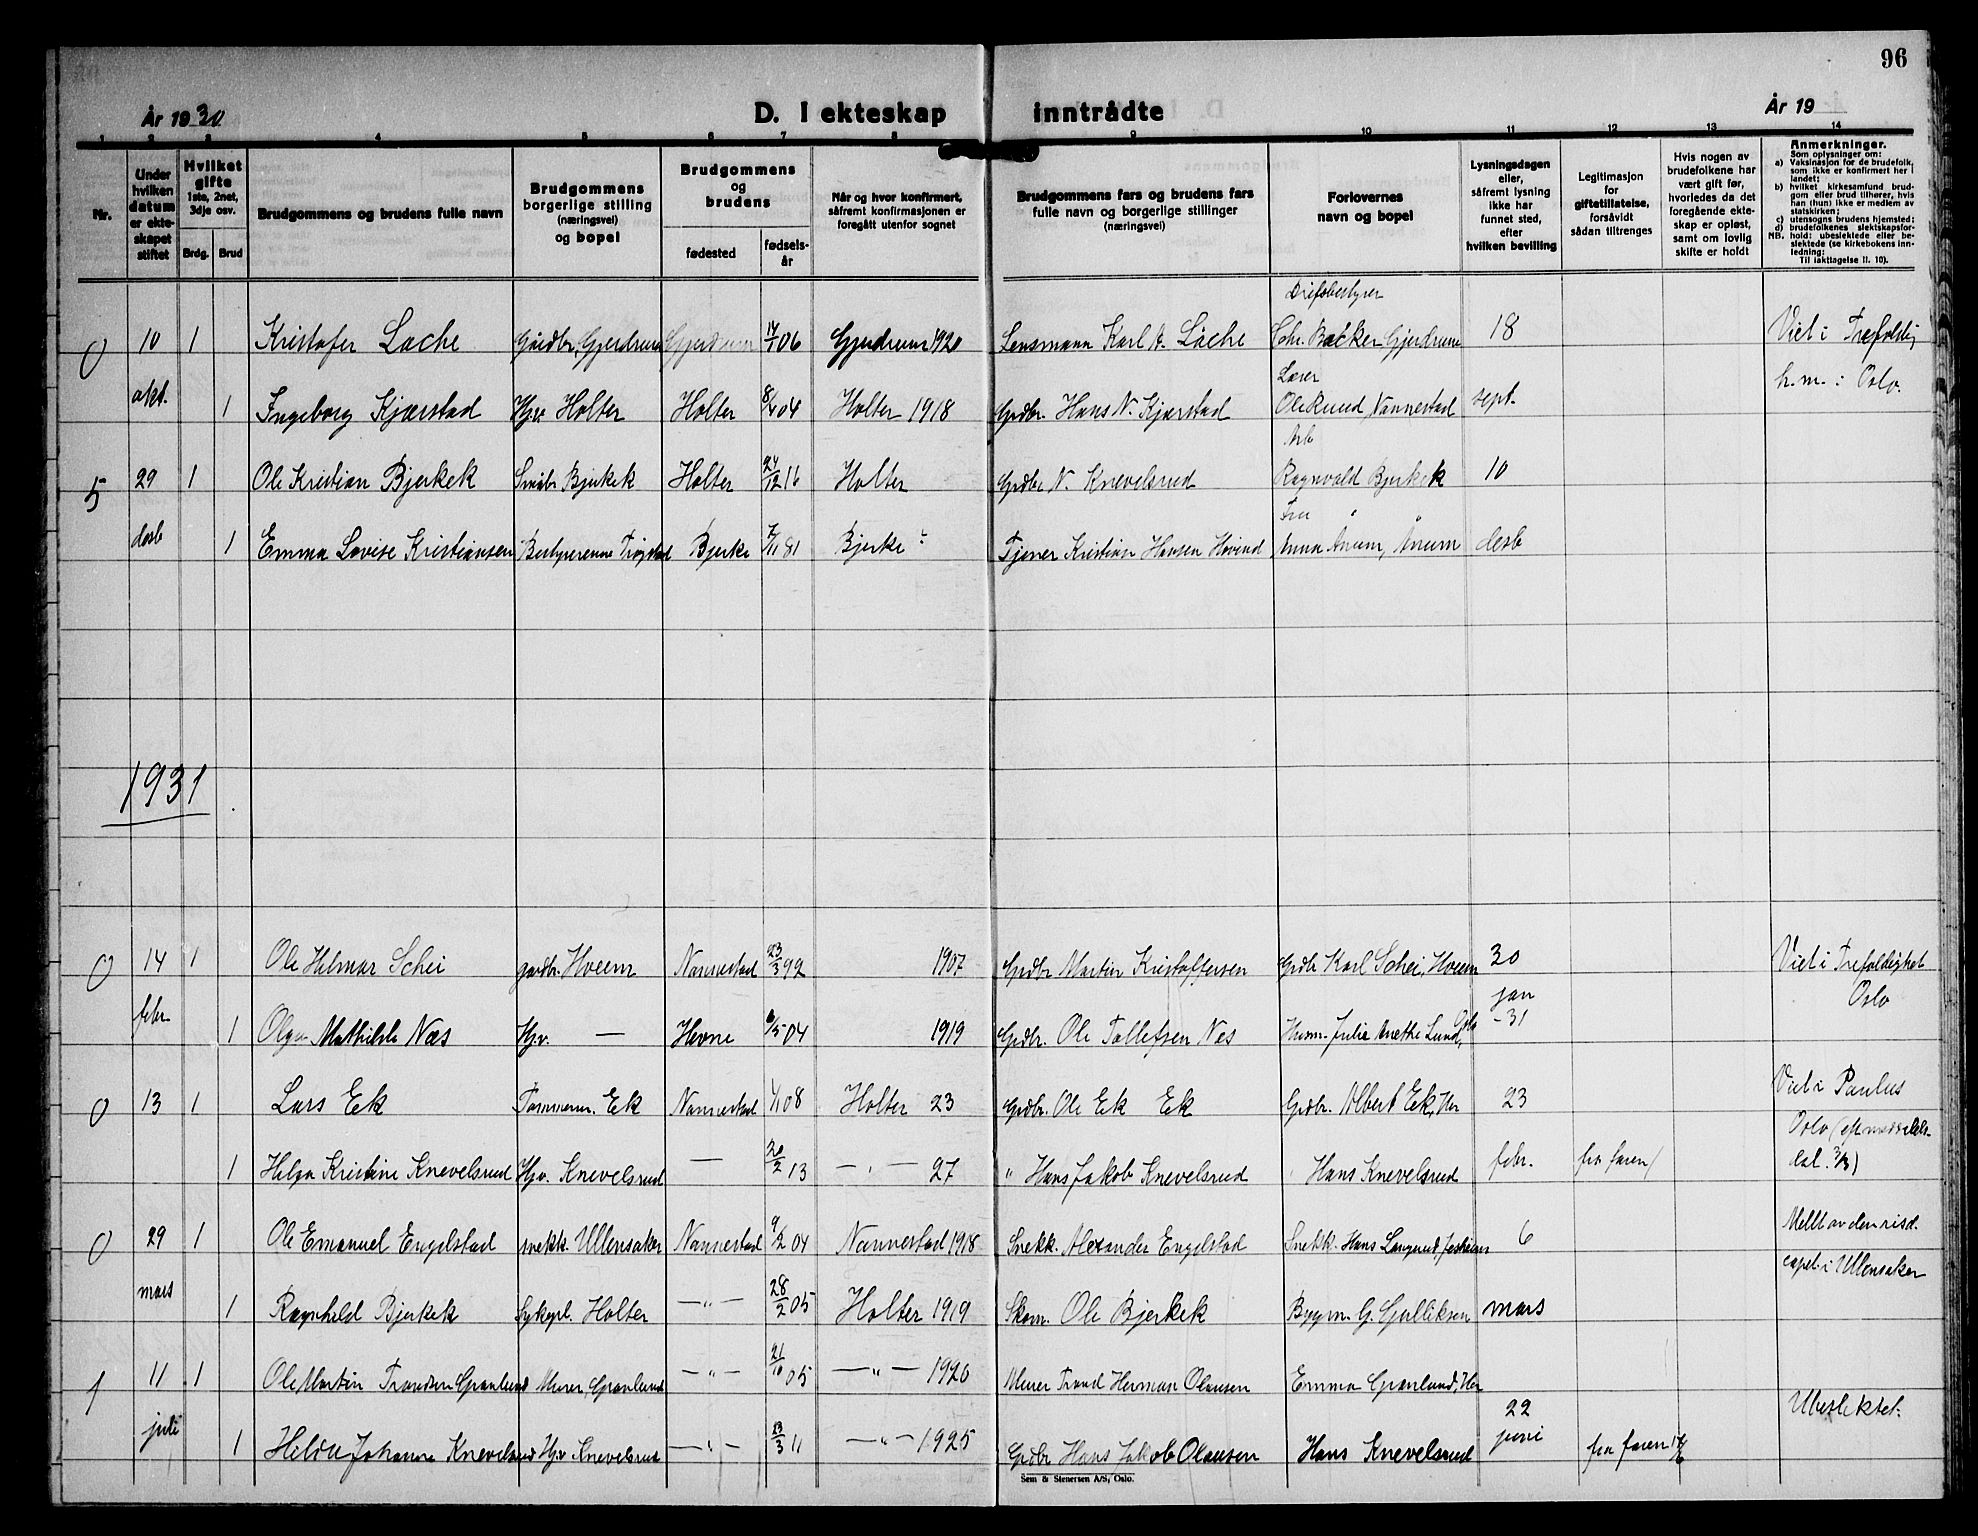 96
År 1930
D. I ekteskap inntrådte
År 19
1 2 3 4 5 6 7 8 9 10 11 12 13 14
Nr.
Under hvilken datum er ekteskapet stiftet
Hvilket gifte 1ste, 2net, 3dje osv.
Brdg. Brud
Brudgommens og brudens fulle navn
Brudgommens borgerlige stilling (næringsvei) og bopel
Brudgommens og brudens
fødested
fødselsår
Når og hvor konfirmert, såfremt konfirmasjonen er foregått utenfor sognet
Brudgommens fars og brudens fars fulle navn og borgerlige stillinger (næringsvei)
Forlovernes navn og bopel
Lysningsdagen eller, såfremt lysning ikke har funnet sted, efter hvilken bevilling
Legitimasjon for giftetillatelse, forsåvidt sådan tiltrenges
Hvis nogen av brudefolkene har vært gift før, hvorledes da det foregående ekteskap er opløst, samt om lovlig skifte er holdt
Anmerkninger.
Som oplysninger om:
a) Vaksinasjon for de brudefolk, som ikke er konfirmert her i landet;
b) hvilket kirkesamfund brudgom eller brud tilhører, hvis han (hun) ikke er medlem av statskirken;
c) utensogns brudens hjemsted;
d) brudefolkenes slektskapsforhold: ubeslektede eller beslektede (se kirkebokens innledning:
NB.
Til iakttagelse II. 10).
0 10 1 Kristofer Låche Gårdbr., Gjerdrum Gjerdrum 14/1 06 Gjerdrum 1920 Lensmann Karl A. Låche Drifsbestyrer Chr. Backer Gjerdrum 18 Viet i Trefoldig
okt. 1 Ingeborg Kjærstad Hjv. Holter Holter 8/4 04 Holter 1918 Grdbr. Hans N. Kjærstad Lærer Ole Ruud, Nannestad sept. h.m. i Oslo.
5 29 1 Ole Kristian Bjerkek Småbr Bjerkek Holter 24/12 16 Holter Grdbr N. Knevelsrud Arb Ragnvald Bjerkek 10
desb 1 Emma Lovise Kristiansen Bestyrerenne Trøgstad Bjerke 7/11 81 Bjerke ? Tjener Kristian Hansen Hovind Fru Anna Ånum, Ånum desb
1931
0 14 1 Ole Hilmar Schei gardbr. Hveem Nannestad 23/3 92 1907 Grdbr Martin Kristoffersen Grdbr Karl Schei, Hveem 30 Viet i Trefoldighet
febr. 1 Olga Mathilde Næs Hjv. — Hevne 6/5 04 1919 Grdbr. Ole Tollefsen Næs Husm. Julie Anethe Lund, Oslo jan -31 Oslo
0 13 1 Lars Ek Tømmerm. Ek Nannestad 1/1 08 Holter 23 Grdbr. Ole Ek Ek Grdbr. Albert Ek, Her 23 Viet i Paulus
1 Helga Kristine Knevelsrud Hjv. Knevelsrud — 20/2 13 — " — 27 " Hans Jakob Knevelsrud " Hans Knevelsrud febr. fra faren Oslo
0 29 1 Ole Emanuel Engelstad snekk. Ullensaker Nannestad 9/2 04 Nannestad 1918 Snekk. Alexander Engelstad Snekk. Hans Langerud, Jessheim 6 Meldt av den risd.
mars 1 Ragnhild Bjerkek Sykepl. Holter — " — 28/2 05 Holter 1919 Skom. Ole Bjerkek Byggm. G. Gulliksen mars capel. i Ullensaker
1 11 1 Ole Martin Trondsen Grønlund Murer, Grønlund — " — 21/10 05 — " — 1920 Murer Trond Herman Olausen Emma Grønlund, Her 22 Ubeslektet.
juli 1 Hilda Johanne Knevelsrud Hjv. Knevelsrud — " — 23/3 11 — " — 1925 Grdbr Hans Jakob Olausen Hans Knevelsrud juni fra faren
Sem & Stenersen A/S, Oslo.